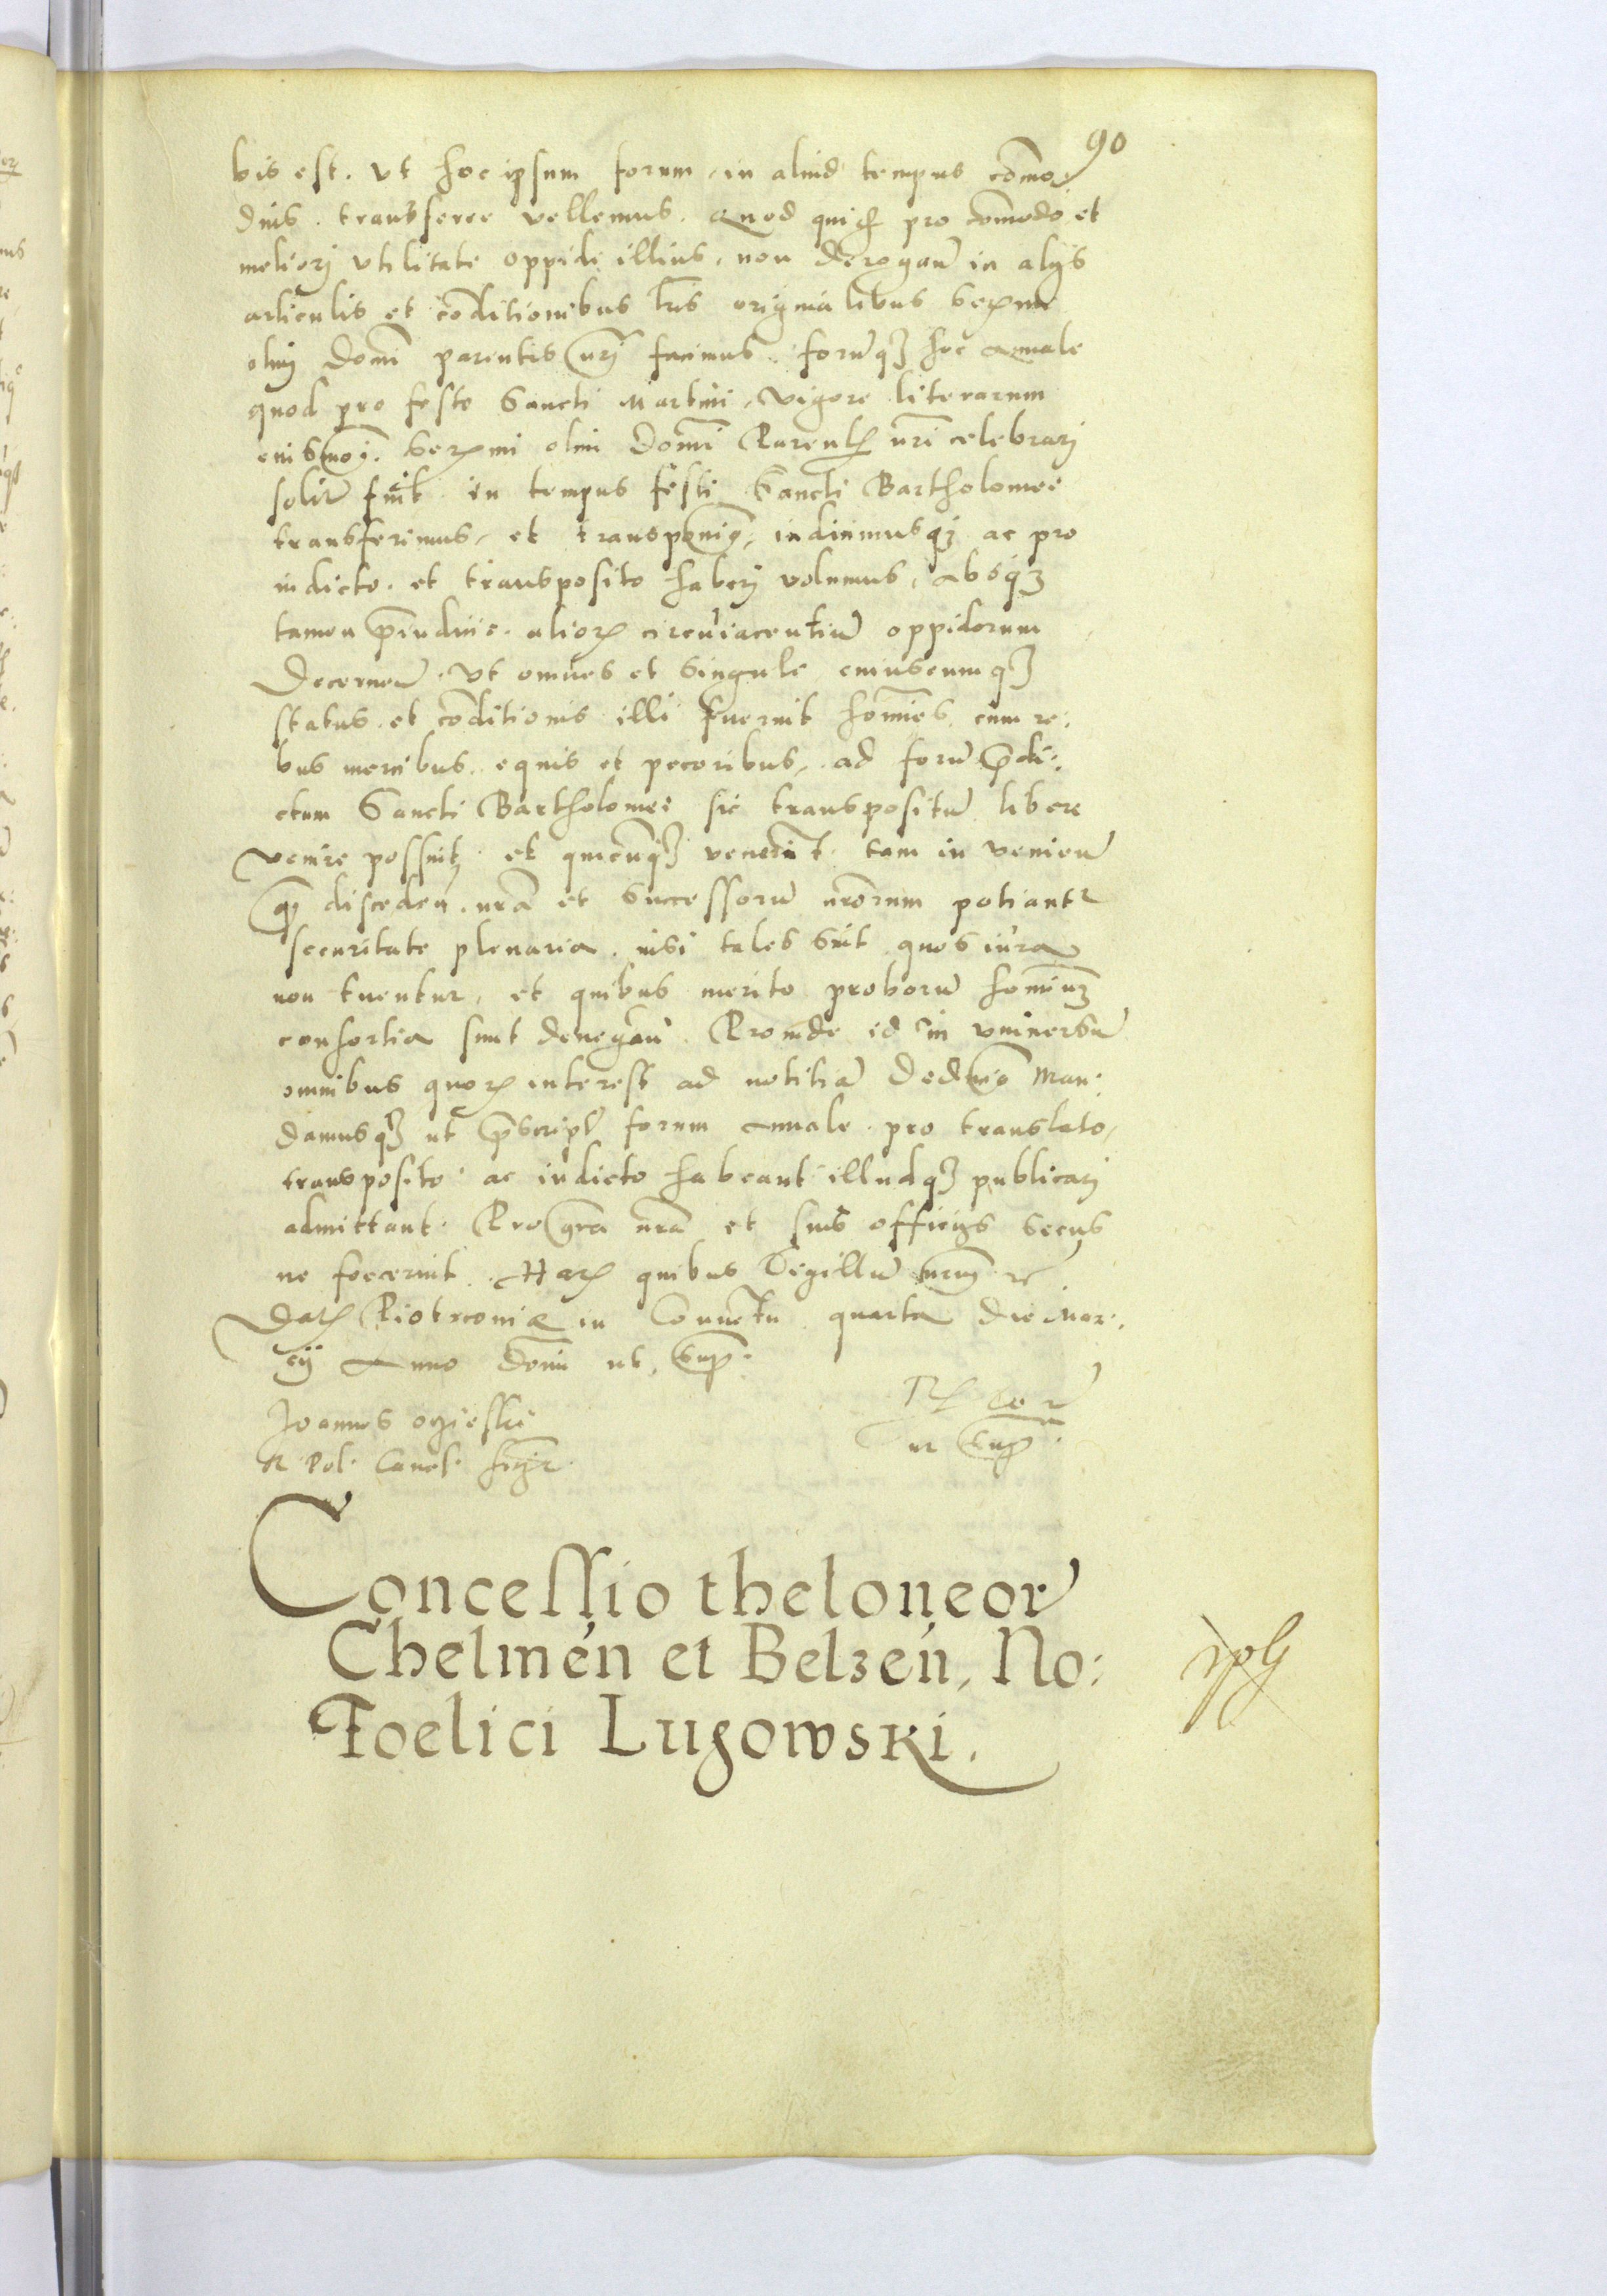 90
bis est. ut hoc ipsum forum in aliud tempus com̅o
dius. transferre vellemus. Quod quidē pro com̅odo et
meliori vtilitate oppidi illius, non derogan̄ in alijs
articulis et cōditionibus lr̅is originalibus Serᵐⁱ
olim Domī parentis nr̅i facimus. forūqȝ hoc annale
quod pro festo Sancti Martini, vigore literarum
eiusmōi. Serᵐⁱ olim Domī Parentꝭ nr̅i celebrari
solitū fuit in tempus festi Sancti Bartholomei
transferimus, et transponim⁹, indicimusqȝ ac pro
indicto. et transposito haberi volumus, Absqȝ
tamen p̄iudicio. alioꝝ circūiacentiū oppidorum
Decernen̄. Ut omnes et singuli cuiuscumqȝ
status. et cōditionis illi fuerint hom̄ies, cum re:
bus mercibus. equis et pecoribus, ad forū p̄di:
ctum Sancti Bartholomei sic transpositū libere
venire possint. et quicūqȝ venerint. tam in venien̄
qȝ disceden̄. nr̅a et Successorū nr̅orum potiantʳ
securitate plenaria. nisi tales sint quos iura
non tuentur, et quibus merito proborū hominū
consortia sunt denegan̄. Proinde id in vniuersū
omnibus quoꝝ interest ad notitiā deducim⁹ Man:
damusqȝ ut p̄script̄ forum annale. pro translato,
transposito. ac indicto habeant illudqȝ publicari
admittant. Pro gr̅a nr̅a et suis officijs secus
ne foecerint. Haꝝ quibus Sigillū nr̅um ⁊c̄
Datꝭ Piotrconiæ in Conuentu quarta die Mar:
cij Anno Domī ut. supᵃ.
Joannes ocziesski
R Pol. Canc̄l. ss̅t
Rᵒ Co ⁊c̄
ut supᵃ.
Concessio theloneor̄
Chelmen̄ et Belzen̄, No:
Foelici Lugowski.